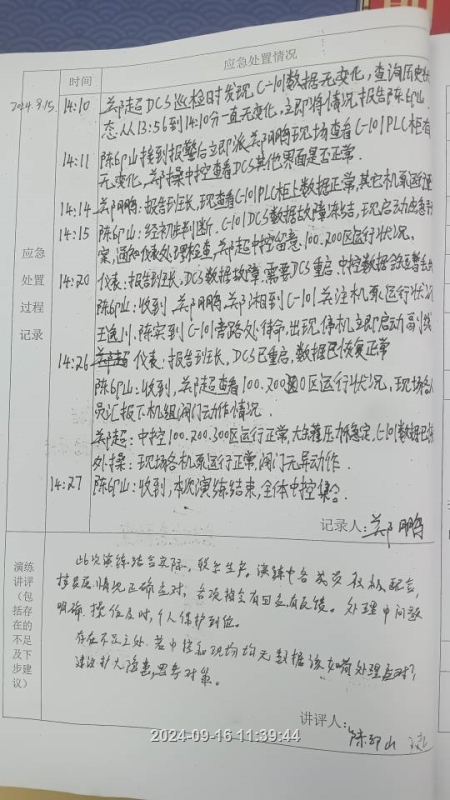 时间
应急处置情况
2024.9.15
14:10
郑超DCS巡检时发现,C-101数据无变化,查询历史
态,从13:56到14:10分一直无变化,立即将情况报告陈邙山.
14:11
陈邙山接到报警后立即派郑鹏鹏现场查看C-101PLC柜
无变化,郑操中控查看DCS其他界面是否正常.
14:14
郑鹏:报告班长,现查看C-101PLC柜上数据正常,其它机泵
14:15
陈邙山:经初步判断,C-101DCS数据故障冻结,现启动应急
案,通知仪表处理检查,郑超中控留意100.200区运行状况.
14:20
仪表:报告班长,DCS数据故障,需要DCS重启,中控数据
陈邙山:收到,郑鹏鹏,关湘到C-101关注机泵运行状况
王逸川、陈实到C-101旁路处待命,出现停机立即启动
14:26
仪表:报告班长,DCS已重启,数据已恢复正常
陈邙山:收到,郑超查看100.200.300区运行状况,现场
员汇报下机组,阀门动作情况.
郑超:中控100.200.300区运行正常,大罐压力稳定,C-101数据
外操:现场各机泵运行正常,阀门无异动作.
14:27
陈邙山:收到,本次演练结束,全体中控集合.
应急
处置
过程
记录
记录人:郑鹏
演练
讲评
(包
括存
在的
不足
及下
步建
议)
此次演练结合实际,联系生产。演练中各类人员积极配合,
情况正确应对,各项指令有回应有反馈。处理中问题
明确,操作及时,个人保护到位。
存在不足之处,若中控和现场均无数据该如何处理应对?
建议 无隐患,思考对策。
讲评人:陈邙山
2024-09-16 11:39:44